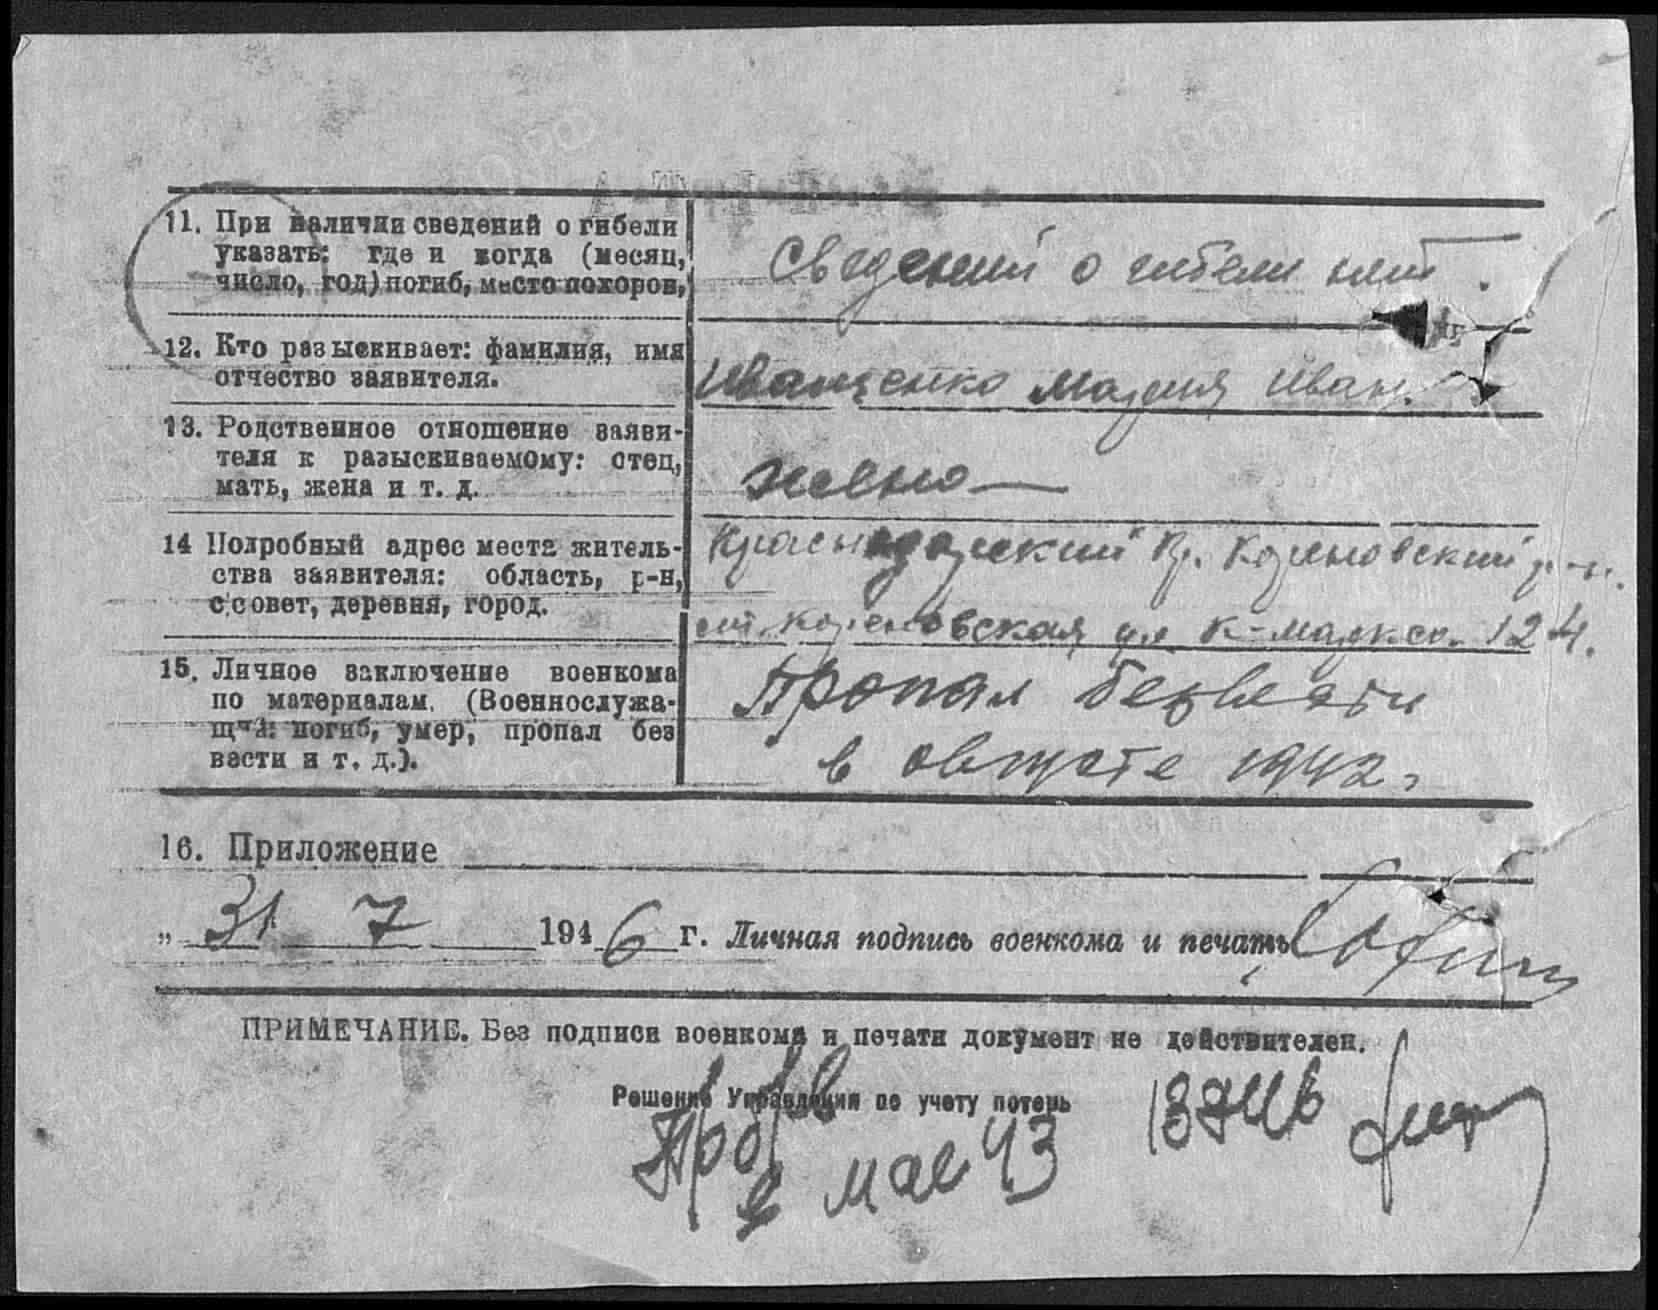 11. При наличии сведений о гибели
указать: где и когда (месяц,
число, год) погиб, место похорон,
Сведений о гибели нет.
12. Кто разыскивает: фамилия, имя
отчество заявителя.
Иващенко Мария Иван.
13. Родственное отношение заяви-
теля к разыскиваемому: отец,
мать, жена и т. д.
жена
14 Подробный адрес места житель-
ства заявителя: область, р-н,
с/совет, деревня, город.
Краснодарский кр. Кореновский р-н.
ст. Кореновская ул К-Маркса. 124.
15. Личное заключение военкома
по материалам. (Военнослужа-
щий: погиб, умер, пропал без
вести и т. д.).
Пропал безвести
в августе 1942г
16. Приложение
„ 31 7 1946 г. Личная подпись военкома и печать
ПРИМЕЧАНИЕ. Без подписи военкома и печати документ не действителен.
Решение Управления по учету потерь
Проп
в мае 43